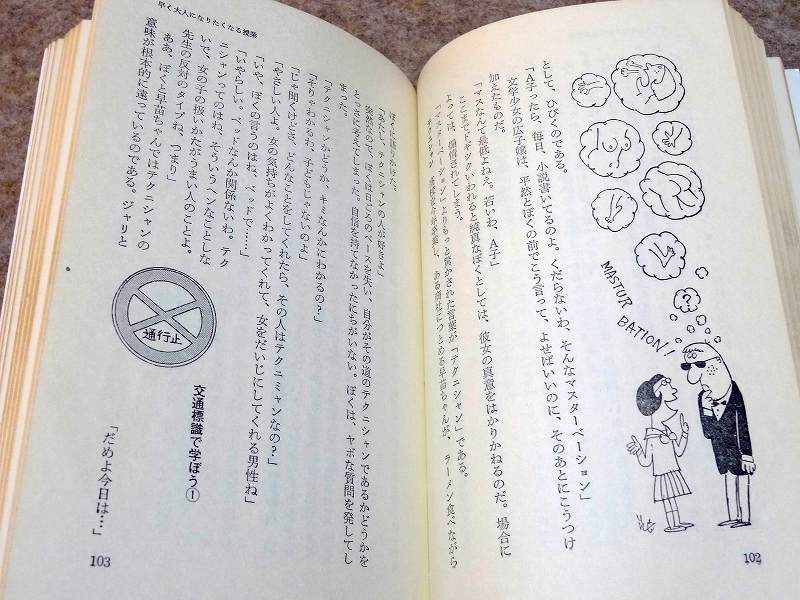 MASTUR
BATION!
?
として、ひびくのである。
「A子ったら、毎日、小説書いてるのよ。くだらないわ、そんなマスターベーション」
文学少女の広子嬢は、平然とぼくの前でこう言って、よせばいいのに、そのあとにこうつけ
加えたものだ。
「マスなんて最低よねえ。若いわ、A子」
ここまでドギツクいわれると純真なぼくとしては、彼女の真意をはかりかねるのだ。場合に
よっては、欲情されてしまう。
「マスターベーション」よりもっと驚かされた言葉が「テクニシャン」である。
今年卒業し、ある商社につとめる早苗ちゃんが、ラーメン食べながら
102
早く大人になりたくなる授業
ぼくに語りかけた。
「あたし、テクニシャンの人が好きよ」
突然なので、ぼくは日ごろのペースを失い、自分がその道のテクニシャンであるかどうかを
とっさに考えてしまった。自信を持てなかったにちがいない。ぼくは、ヤボな質問を発してし
まった。
「テクニシャンかどうか、キミなんかにわかるの？」
「そりゃわかるわ、子どもじゃないのよ」
「じゃ聞くけどさ、どんなことをしてくれたら、その人はテクニミャンなの？」
「やさしい人よ。女の気持ちがよくわかってくれて、女をだいじにしてくれる男性ね」
「いや、ぼくの言うのはね、ベッドで……」
「いやらしい。ベッドなんか関係ないわ。テク
ニシャンってのはね、そういうヘンなことしな
いで、女の子の扱いかたがうまい人のことよ。
先生の反対のタイプね、つまり」
ああ、ぼくと早苗ちゃんではテクニシャンの
意味が根本的に違っているのである。ジャリと
通行止
交通標識で学ぼう①
「だめよ今日は…」
103